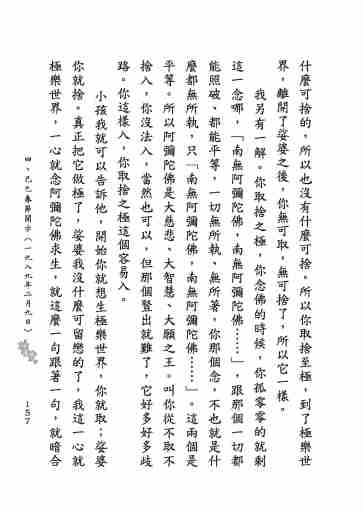 什麼可捨的，所以也沒有什麼可捨。所以你取捨至極，到了極樂世
界，離開了娑婆之後，你無可取，無可捨了，所以它一樣。
我另有一解。你取捨之極，你念佛的時候，你孤零零的就剩
這一念哪，「南無阿彌陀佛，南無阿彌陀佛……」，跟那個一切都
能照破、都能平等，一切無所執、無所著，你那個念，不也就是什
麼都無所執，只「南無阿彌陀佛，南無阿彌陀佛……」。這兩個是
平等。所以阿彌陀佛是大慈悲、大智慧、大願之王。叫你從不取不
捨入，你沒法入，當然也可以，但那個豎出就難了，它好多好多歧
路。你這樣入，你取捨之極這個容易入。
小孩我就可以告訴他，開始你就想生極樂世界，你就取；娑婆
你就捨。真正把它做極了，娑婆我沒什麼可留戀的了，我這一心就
極樂世界，一心就念阿彌陀佛求生。就這麼一句跟著一句，就暗合
四、己巳春節開示（一九八九年二月九日）
157